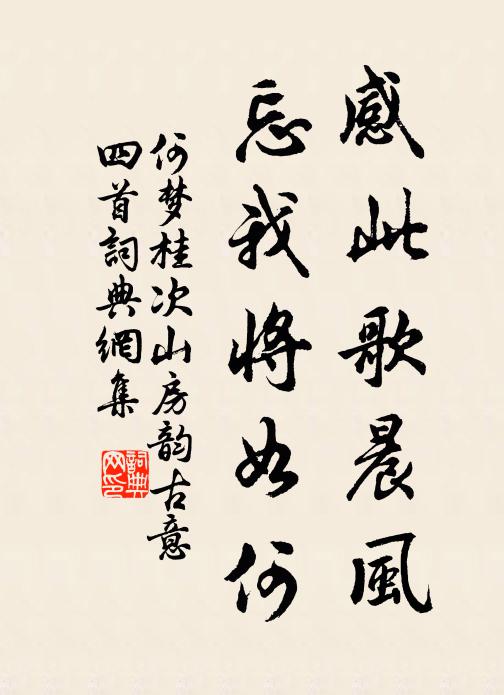 感此歌晨風
忘我將如何
何梦桂次山房韵古意
四首詞典網集
詞典网印